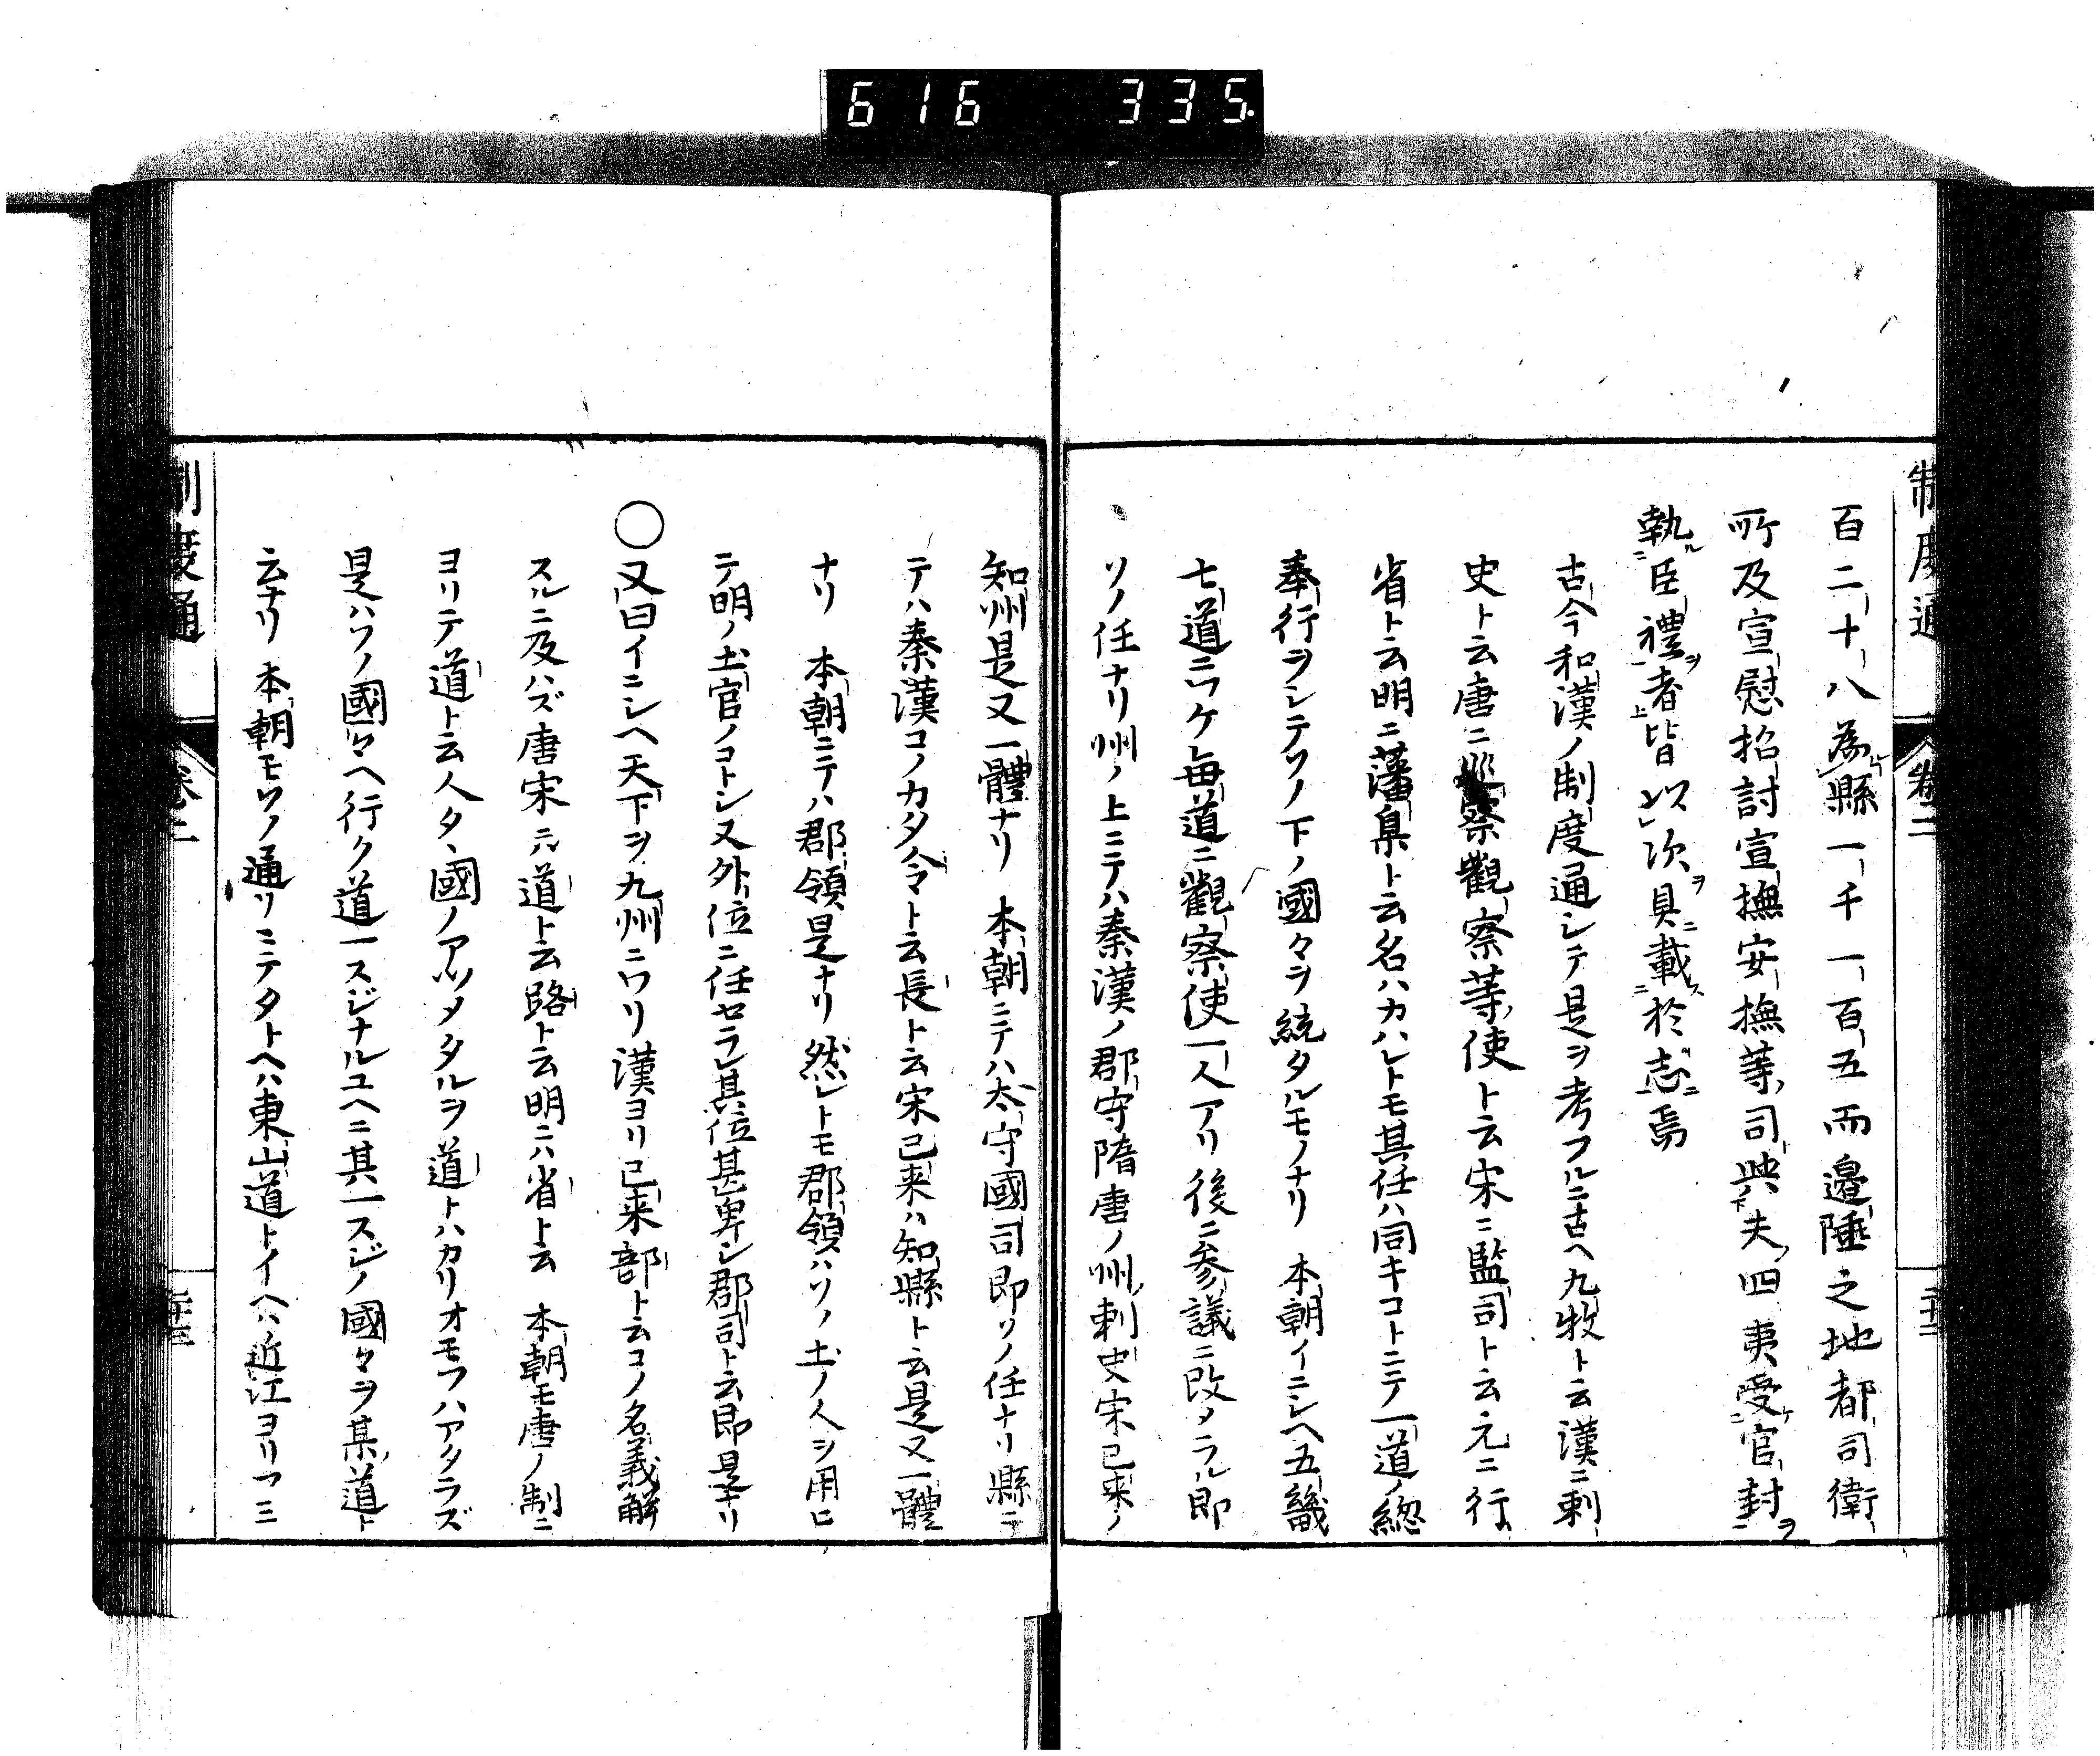 616 335.
制度通 卷二
百二十八為縣一千一百五而邊陲之地都司衛
所及宣慰招討宣撫安撫等司與夫四夷受官封
執臣禮者皆以次具載於志焉
古今和漢ノ制度通シテ是ヲ考フルニ古ヘ九牧ト云漢ニ刺
史ト云唐ニ巡察觀察等使ト云宋ニ監司ト云元ニ行
省ト云明ニ藩臬ト云名ハカハレトモ其任ハ同キコトニテ一道ノ總
奉行ヲシテソノ下ノ國々ヲ統タルモノナリ 本朝イニシヘ五畿
七道ニワケ毎道ニ觀察使一人アリ後ニ参議ニ改メラル即
ソノ任ナリ州ノ上ニテハ秦漢ノ郡守隋唐ノ州刺史宋已来ノ
知州是又一體ナリ 本朝ニテハ太守國司即ソノ任ナリ縣ニ
テハ秦漢コノカタ令ト云長ト云宋已来ハ知縣ト云是又一體
ナリ 本朝ニテハ郡領是ナリ然レトモ郡領ハソノ土ノ人ヲ用ヒ
テ明ノ土官ノコトシ又外位ニ任セラレ其位甚卑シ郡司ト云即是ナリ
○又曰イニシヘ天下ヲ九州ニワリ漢ヨリ已来部ト云コノ名義解
スルニ及ハズ唐宋元ハ道ト云路ト云明ニハ省ト云 本朝モ唐ノ制ニ
ヨリテ道ト云人タヽ國ノアツメタルヲ道トハカリオモフハアタラズ
是ハソノ國々ヘ行ク道一スジナルユヘニ其一スジノ國々ヲ某道ト
云ナリ 本朝モソノ通リニテタトヘハ東山道トイヘハ近江ヨリマ三
制度通 卷二